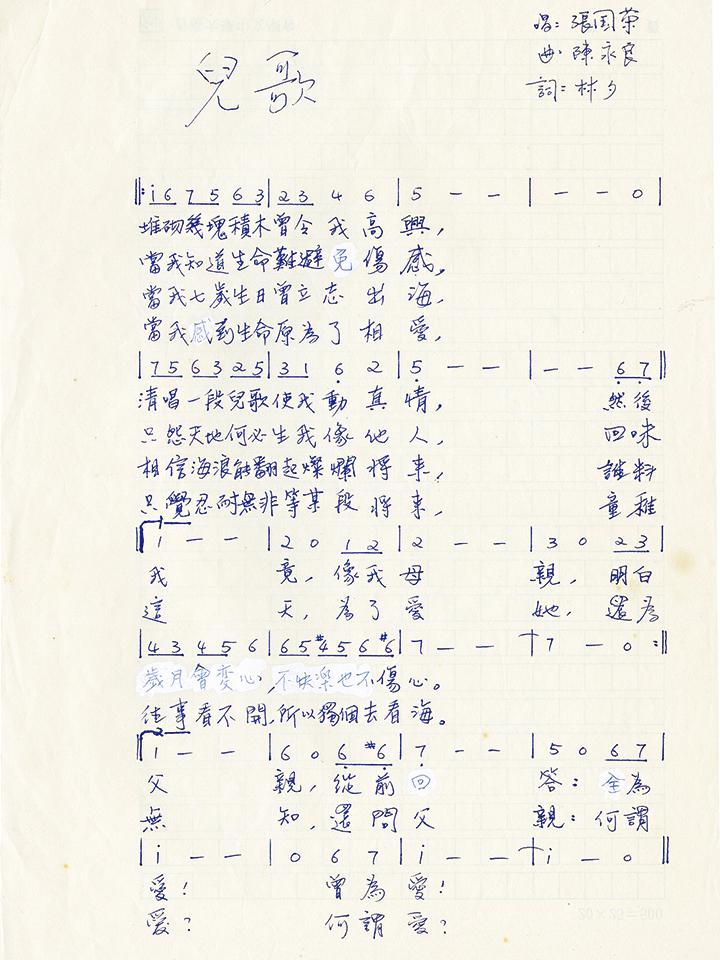 唱：張国荣
曲：陳永良
詞：林夕
兒歌
‖: i 6 7 5 6 3 | 2 3 4 6 | 5 — — | — — 0 |
堆砌幾塊積木曾令我高興，
當我知道生命難避免傷感，
當我七歲生日曾立志出海，
當我感到生命原為了相愛，
| 7 5 6 3 2 5 | 3 1 6 2 | 5 — — | — — 6 7 ‖
清唱一段兒歌使我動真情， 然後
只怨天地何必生我像他人， 回味
相信海浪能翻起燦爛將來， 誰料
只覺忍耐無非等某段將來， 童稚
1
‖ i — — | 2 0 1 2 | 2 — — | 3 0 2 3 |
我 竟，像我母 親，明白
這 天，為了愛 她，還為
| 4 3 4 5 6 | 6 5 #4 5 6 #6 | 7 — — † 7 — 0 :‖
歲月會变心，不快樂也不傷心。
往事看不開，所以獨個去看海。
2
‖ i — — | 6 0 6 #6 | 7 — — | 5 0 6 7 |
父 親，從前回 答：全為
無 知，還問父 親：何謂
| i — — | 0 6 7 | i — — † i — 0 ‖
愛！ 曾為愛！
愛？ 何謂愛？
20×25=500